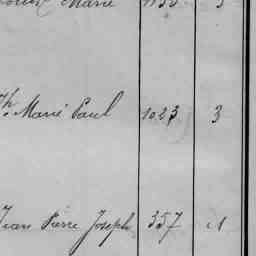 Marie
Th. Marie Paul 1023 3
Jean Pierre Joseph 357 1